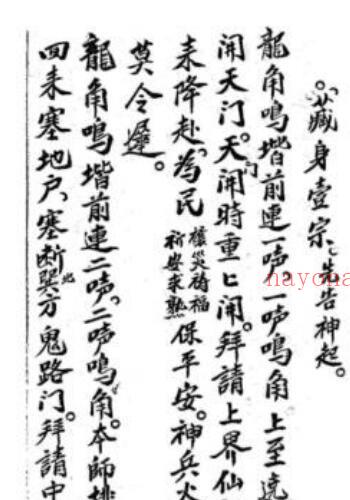 藏身壹宗。先告神起。
龍角鳴堦前連一声。一声鳴角上至
開天门。天门開時重匕開。拜請上界仙
来降赴。為民禳災祷福祈安求熟保平安。神兵火
莫令遲。
龍角鳴堦前連二声。二声鳴角。本师
回来塞地户。塞断巽北方鬼路门。拜請中
nayona